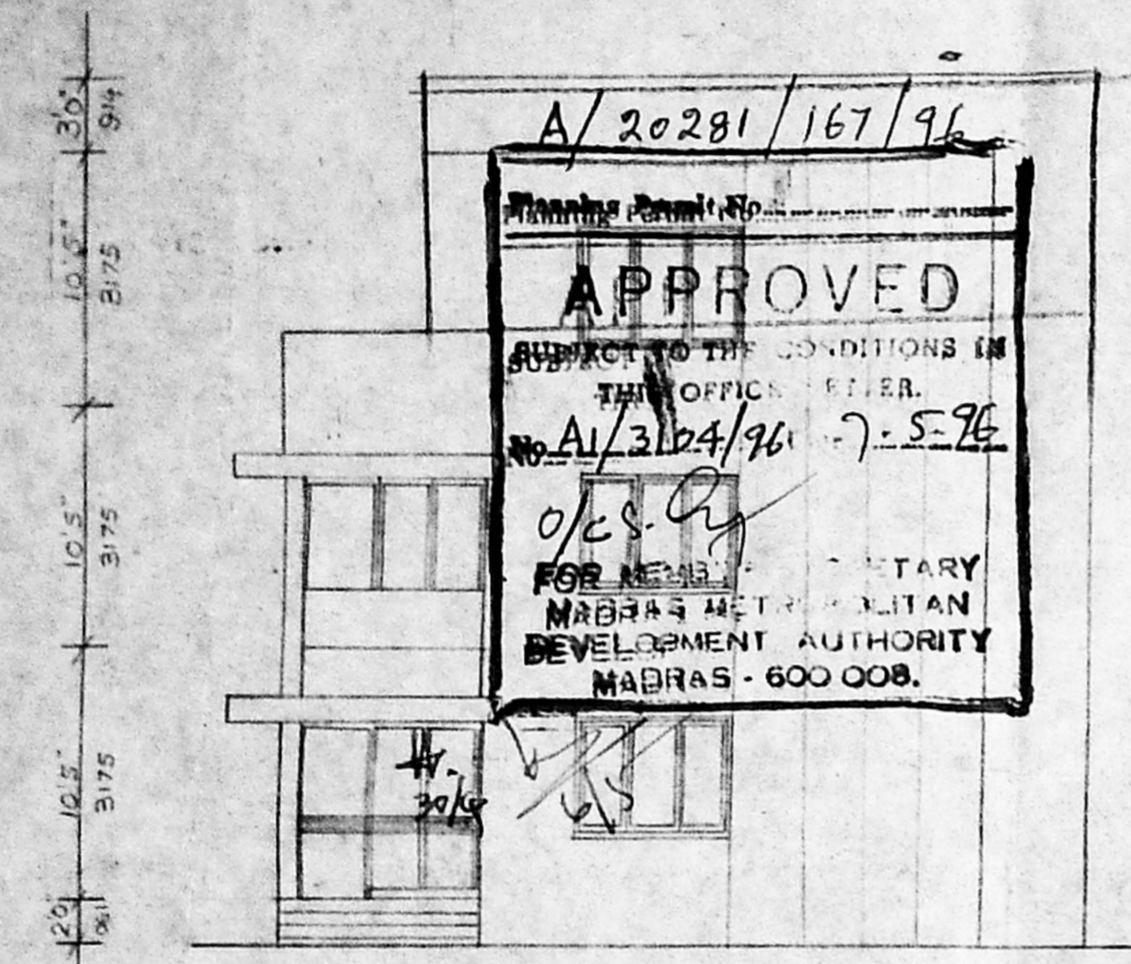 3'0"
914
10'5"
3175
10'5"
3175
10'5"
3175
2'0"
A/20281/167/96
Planning Permit No.
APPROVED
SUBJECT TO THE CONDITIONS IN
THIS OFFICE LETTER.
No. A1/3104/96 7.5.96
O/C S.
FOR MEMBER SECRETARY
MADRAS METROPOLITAN
DEVELOPMENT AUTHORITY
MADRAS - 600 008.
6/5